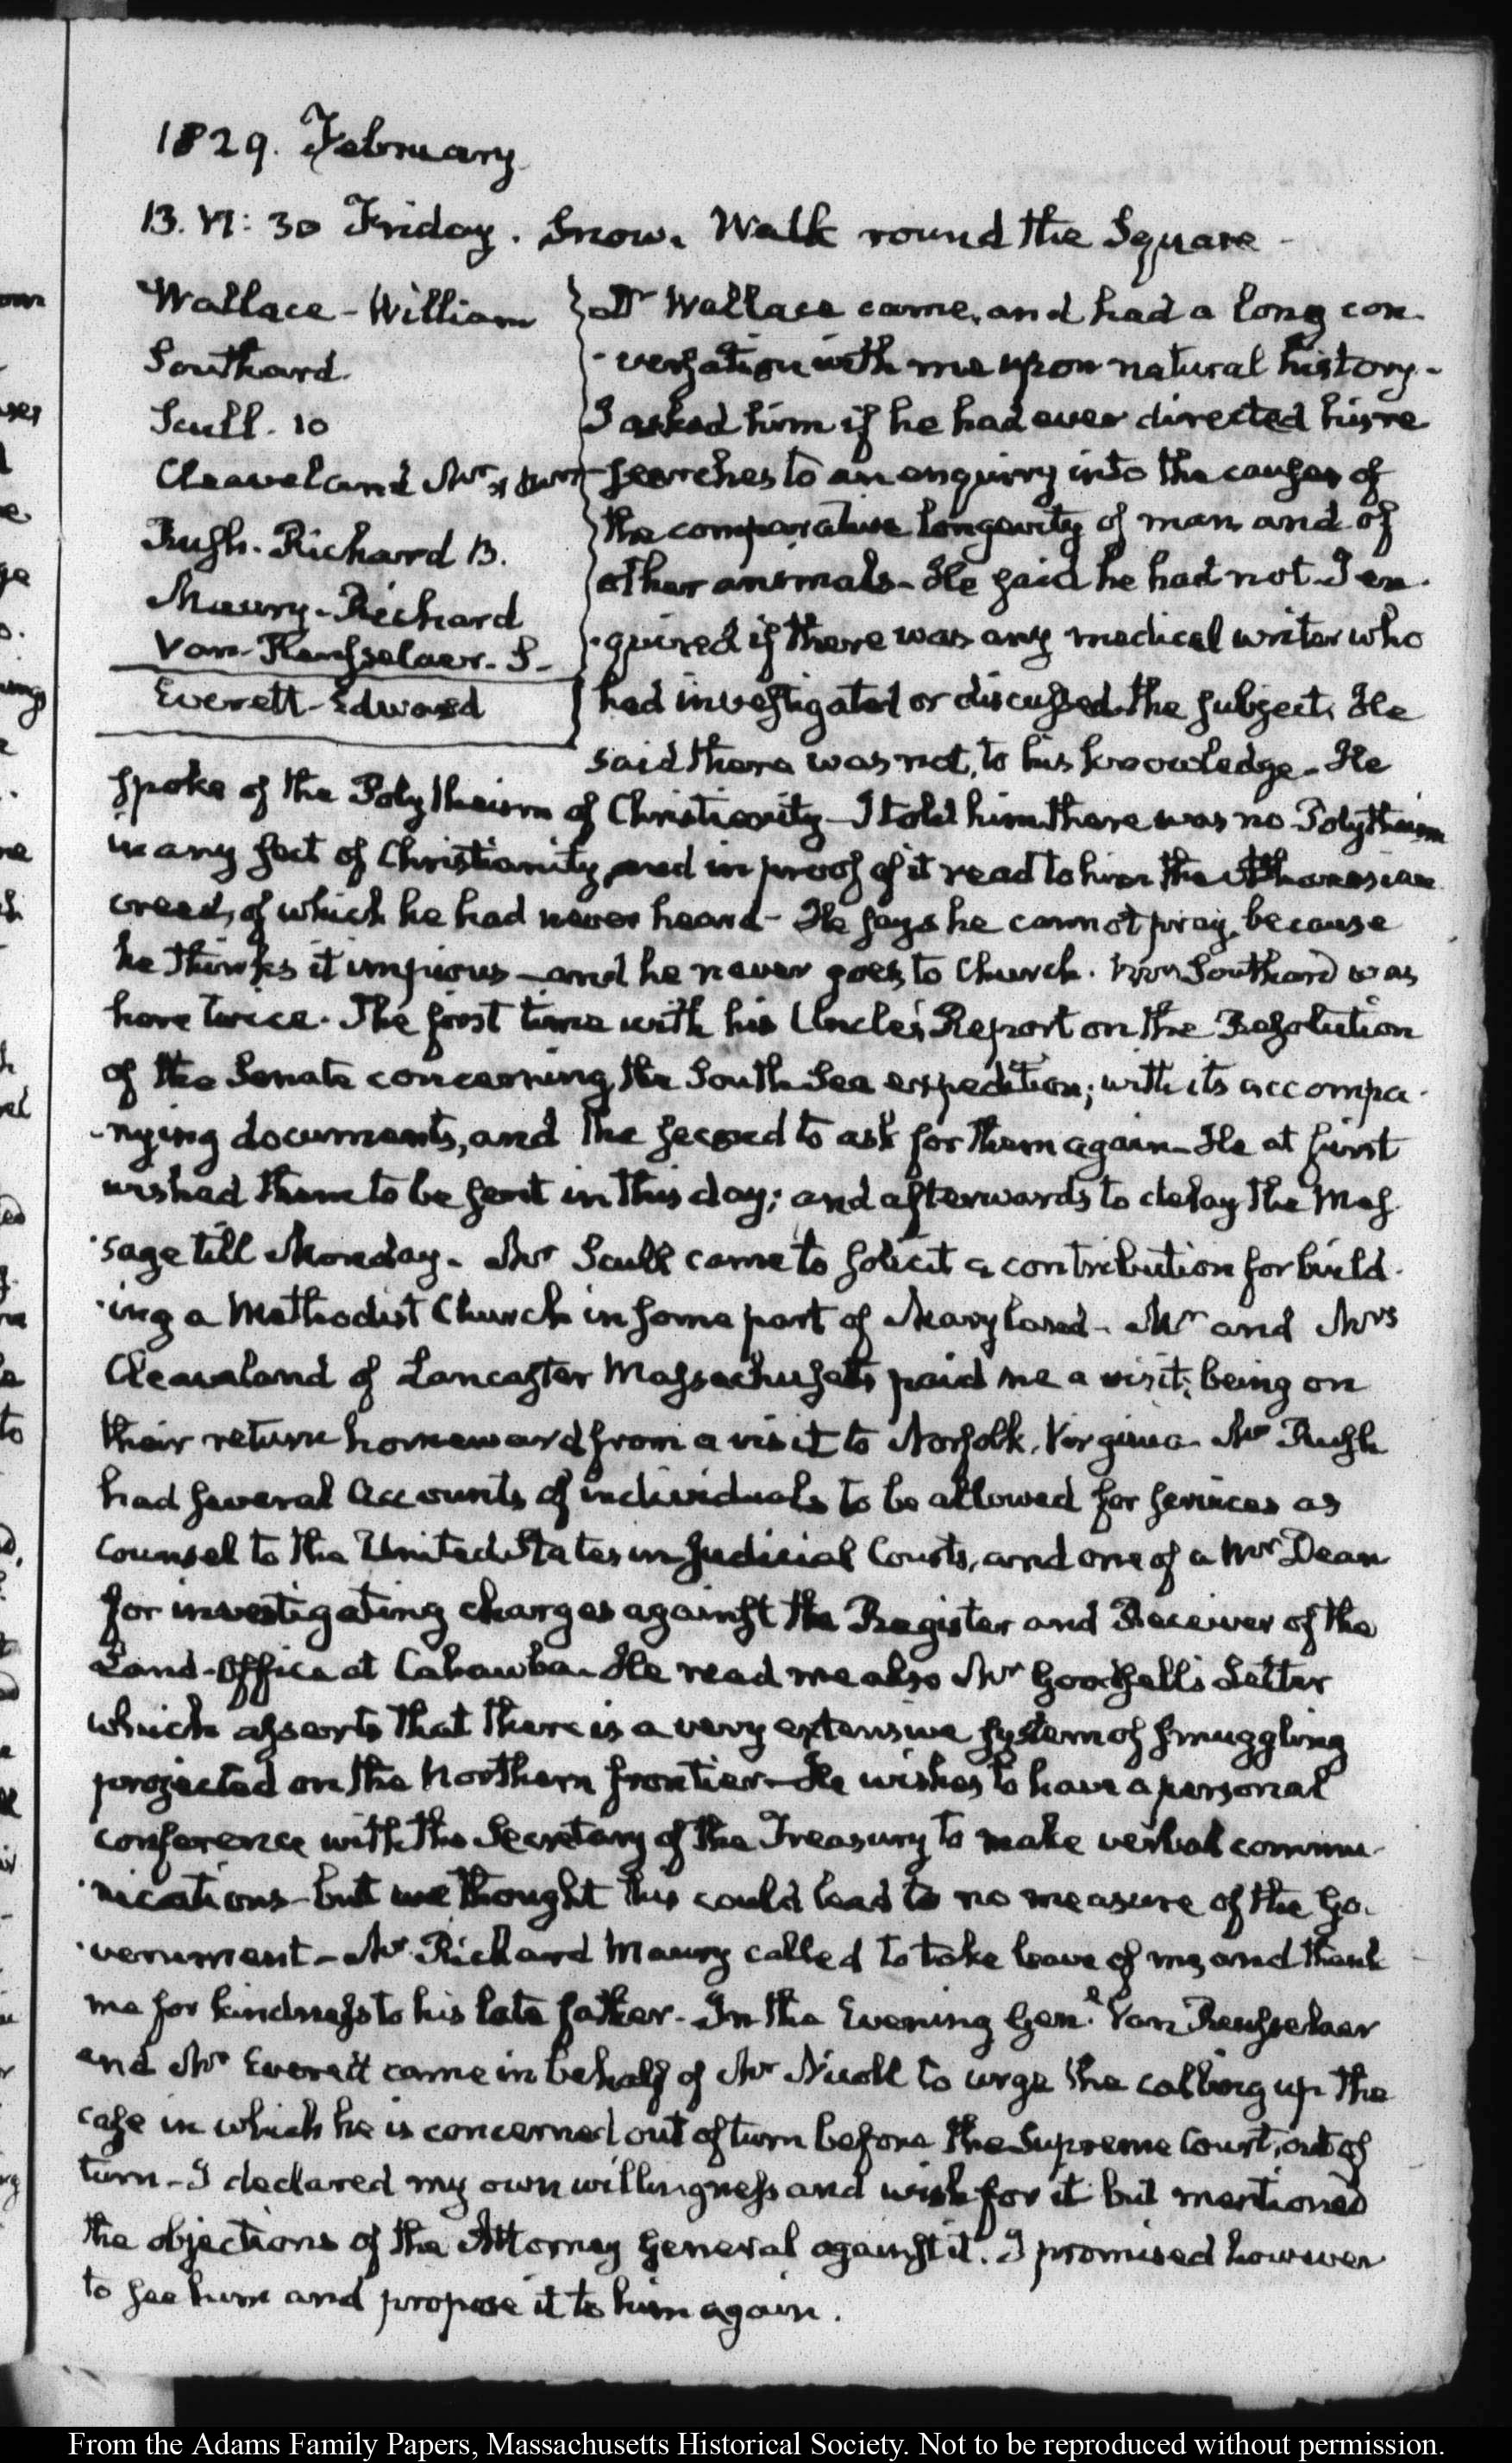 1829. February
13. VI: 30 Friday. Snow. Walk round the Square-
Wallace - William
Southard
Scull. 10
Cleaveland Mr &
Rush. Richard B.
Maury - Richard
Van-Rensselaer. S-
Everett - Edward
Dr Wallace came, and had a long con-
-versation with me upon natural history-
I asked him if he had ever directed his re
searches to an enquiry into the causes of
the comparative longevity of man and of
other animals- He said he had not- I en-
-quired if there was any medical writer who
had investigated or discussed the subject. He
said there was not, to his knowledge- He
spoke of the Polytheism of Christianity- I told him there was no Polytheism
in any sect of Christianity, and in proof of it read to him the Athanasian
creed, of which he had never heard- He says he cannot pray, because
he thinks it impious- and he never goes to Church. Southard was
here twice. The first time with his Uncle's Report on the Resolution
of the Senate concerning the South Sea expedition; with its accompa-
-nying documents, and the second to ask for them again- He at first
wished them to be sent in this day; and afterwards to delay the Mes
-sage till Monday- Mr Scull came to solicit a contribution for build-
-ing a Methodist Church in some part of Maryland- Mr and Mrs
Cleaveland of Lancaster Massachusetts paid me a visit; being on
their return homeward from a visit to Norfolk, Virginia- Mr Rush
had several Accounts of individuals to be allowed for services as
Counsel to the United States in Judicial Courts, and one of a Mr Dean
for investigating charges against the Register and Receiver of the
Land-Office at Cahawba- He read me also Mr Letter
which asserts that there is a very extensive system of smuggling
projected on the Northern frontier- He wishes to have a personal
conference with the Secretary of the Treasury to make verbal commu-
-nications- but we thought this could lead to no measure of the Go-
-vernment- Mr Richard Maury called to take leave of me, and thank
me for kindness to his late father- In the Evening Genl. Van Rensselaer
and Mr Everett came in behalf of Mr Nicoll to urge the calling up the
case in which he is concerned out of turn before the Supreme Court, out of
turn- I declared my own willingness and wish for it but mentioned
the objections of the Attorney General against it. I promised however
to see him and propose it to him again.
From the Adams Family Papers, Massachusetts Historical Society. Not to be reproduced without permission.